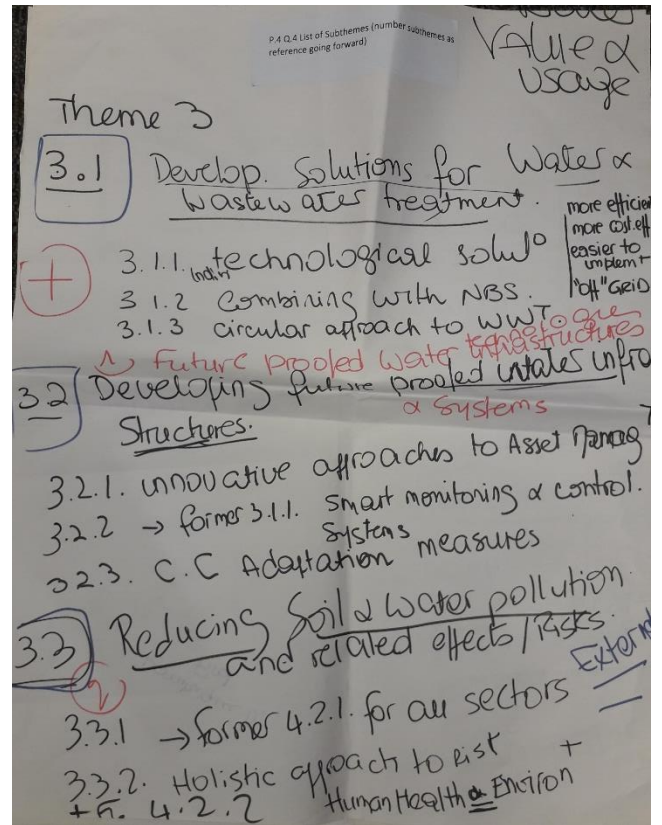 P.4 Q.4 List of Subthemes (number subthemes as
reference going forward)
Value α
Usage
Theme 3
3.1 Develop. Solutions for Water α
Wastewater treatment.
more efficie
more cost.eff
easier to
implemt
"off" GRID
+
3.1.1. technological solut°
3.1.2 Combining with NBS.
3.1.3 circular approach to WWT
Future proofed water infrastructures
α Systems
3.2 Developing future proofed water infra
Structures.
3.2.1. innovative approaches to Asset Manag
3.2.2 → former 3.1.1. Smart monitoring α control.
Systems
3.2.3. C.C Adaptation measures
3.3 Reducing Soil α water pollution.
and related effects / Risks.
Extern
3.3.1 → former 4.2.1. for all sectors
3.3.2. Holistic approach to Risk
+ 4.2.2 Human Health α Environ
+